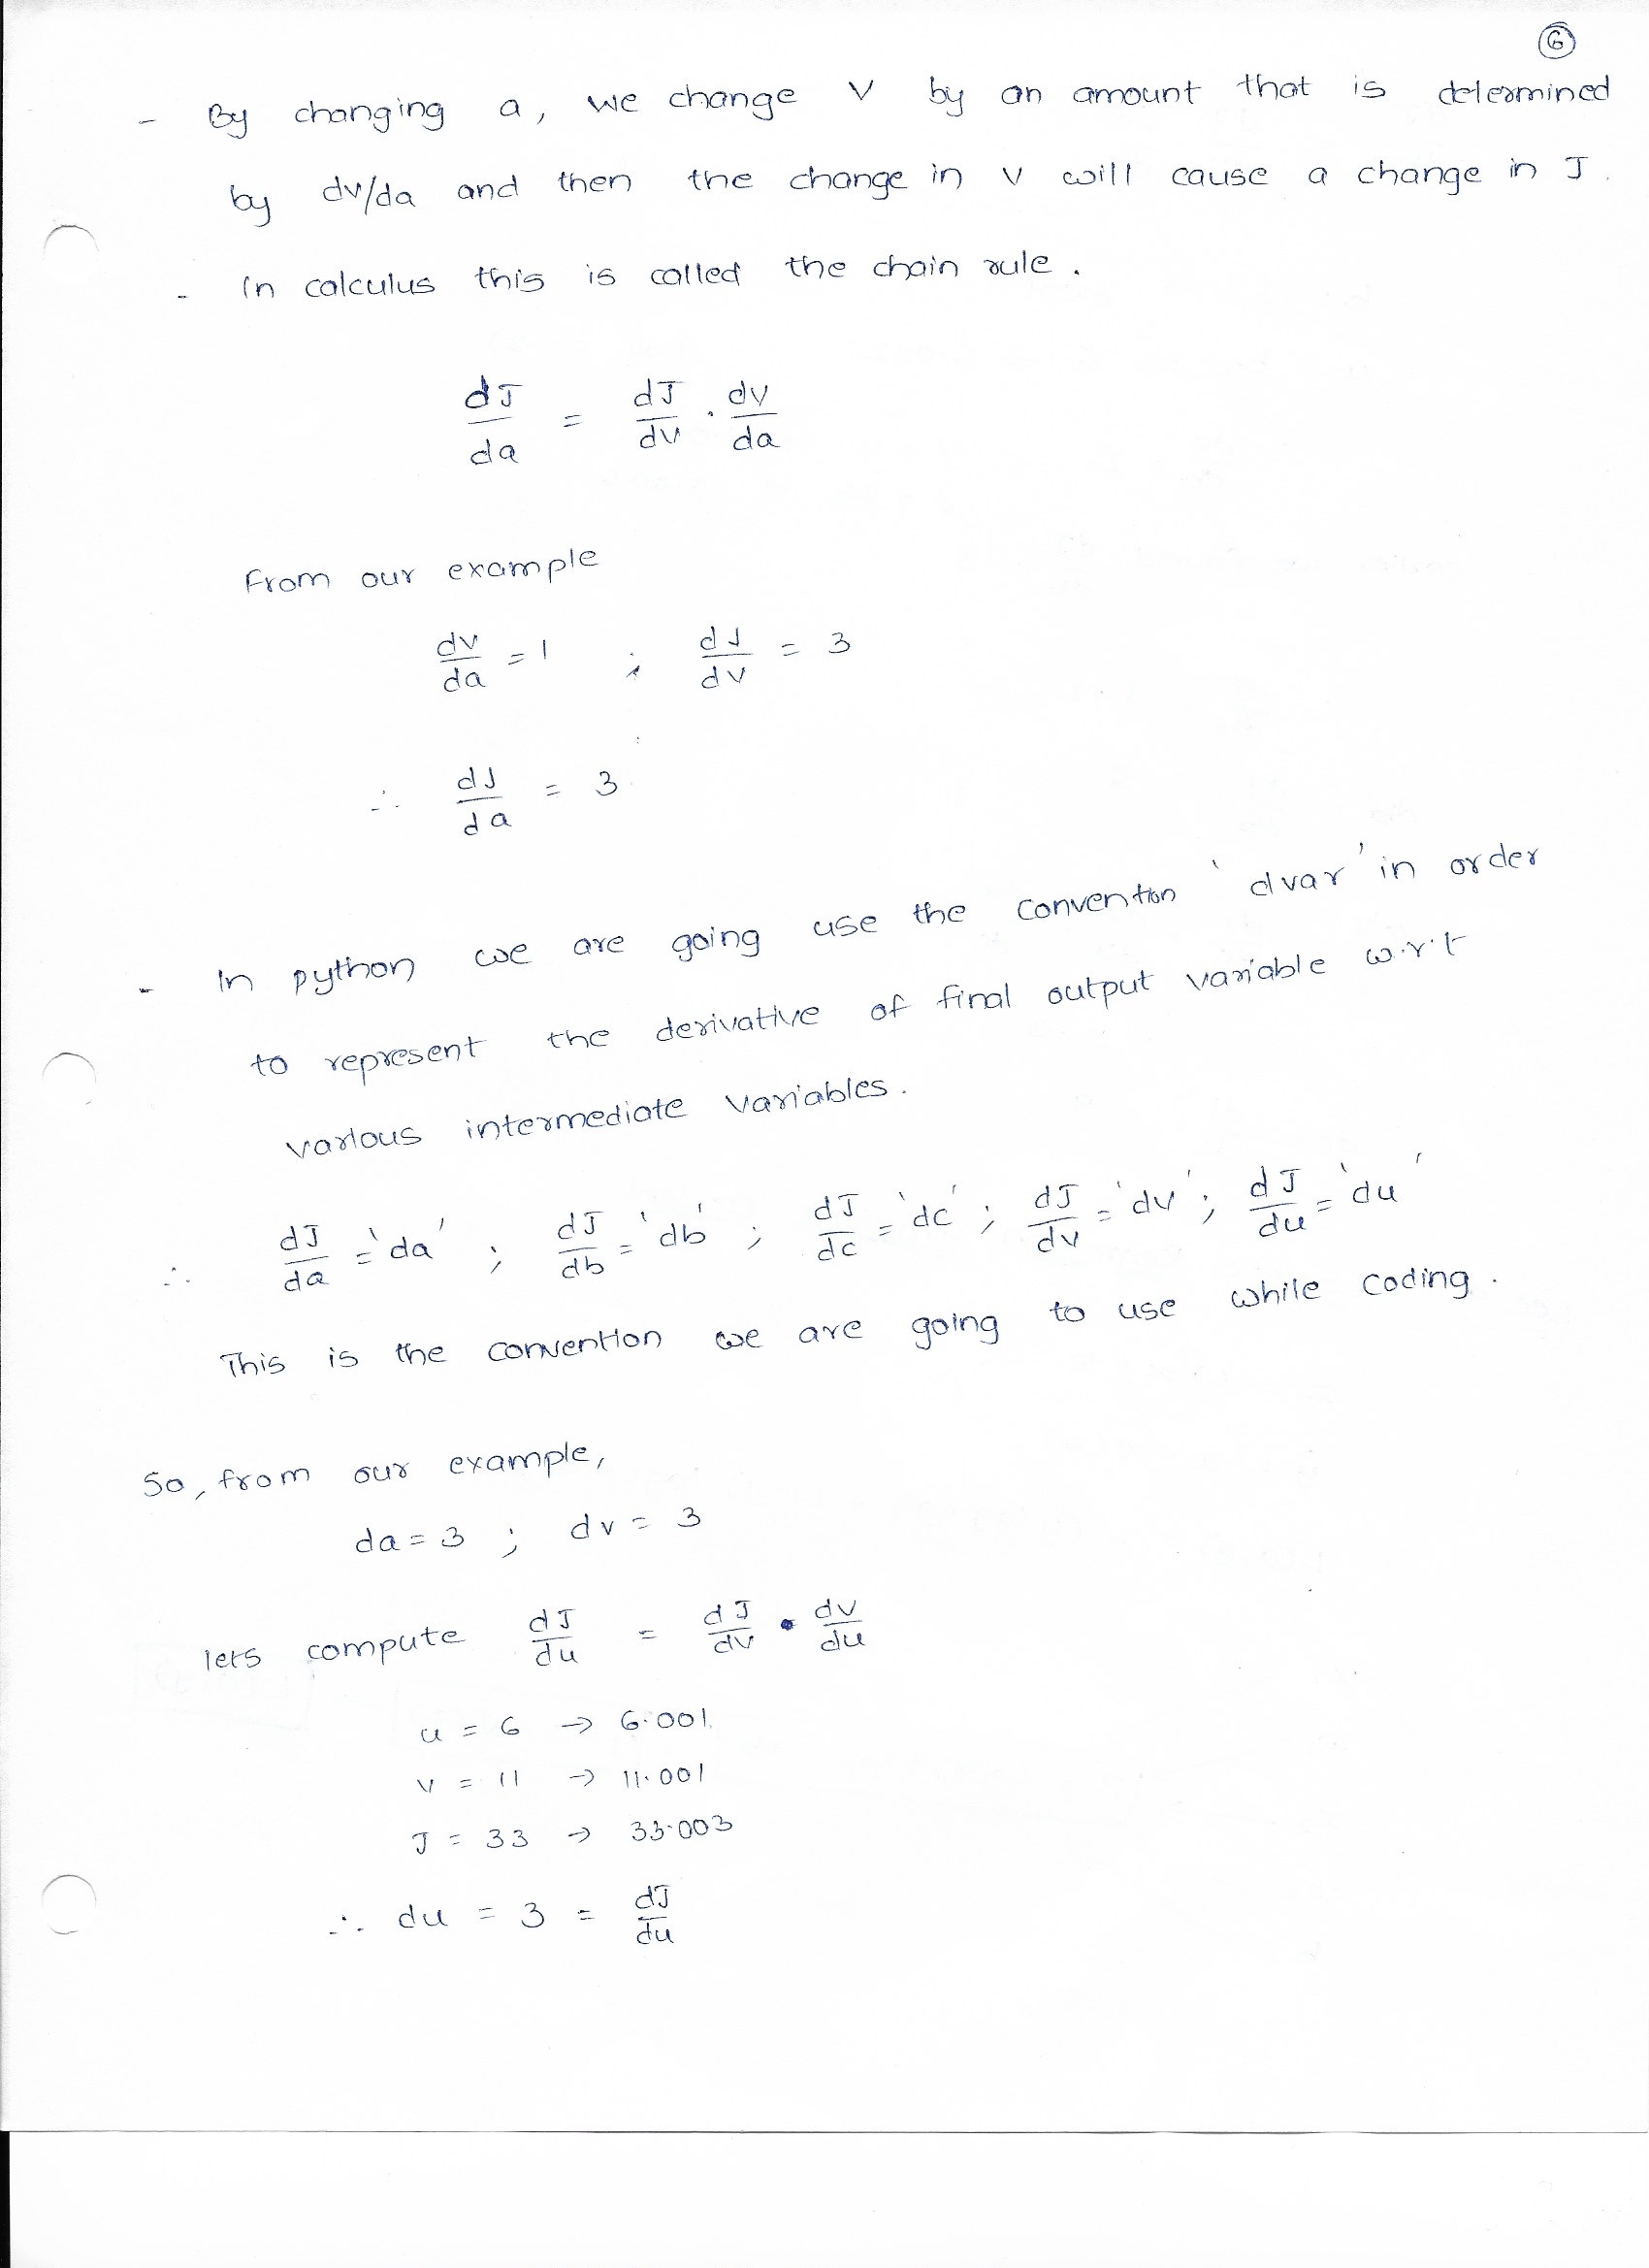 6
- By changing a, we change v by an amount that is determined
by dv/da and then the change in v will cause a change in J.
- In calculus this is called the chain rule.
dJ/da = dJ/dv . dv/da
From our example
dv/da = 1 ; dJ/dv = 3
∴ dJ/da = 3
- In python we are going use the convention 'dvar' in order
to represent the derivative of final output variable w.r.t
various intermediate variables.
∴ dJ/da = 'da' ; dJ/db = 'db' ; dJ/dc = 'dc' ; dJ/dv = 'dv' ; dJ/du = 'du'
This is the convention we are going to use while coding.
So, from our example,
da = 3 ; dv = 3
lets compute dJ/du = dJ/dv . dv/du
u = 6 → 6.001
v = 11 → 11.001
J = 33 → 33.003
∴ du = 3 = dJ/du